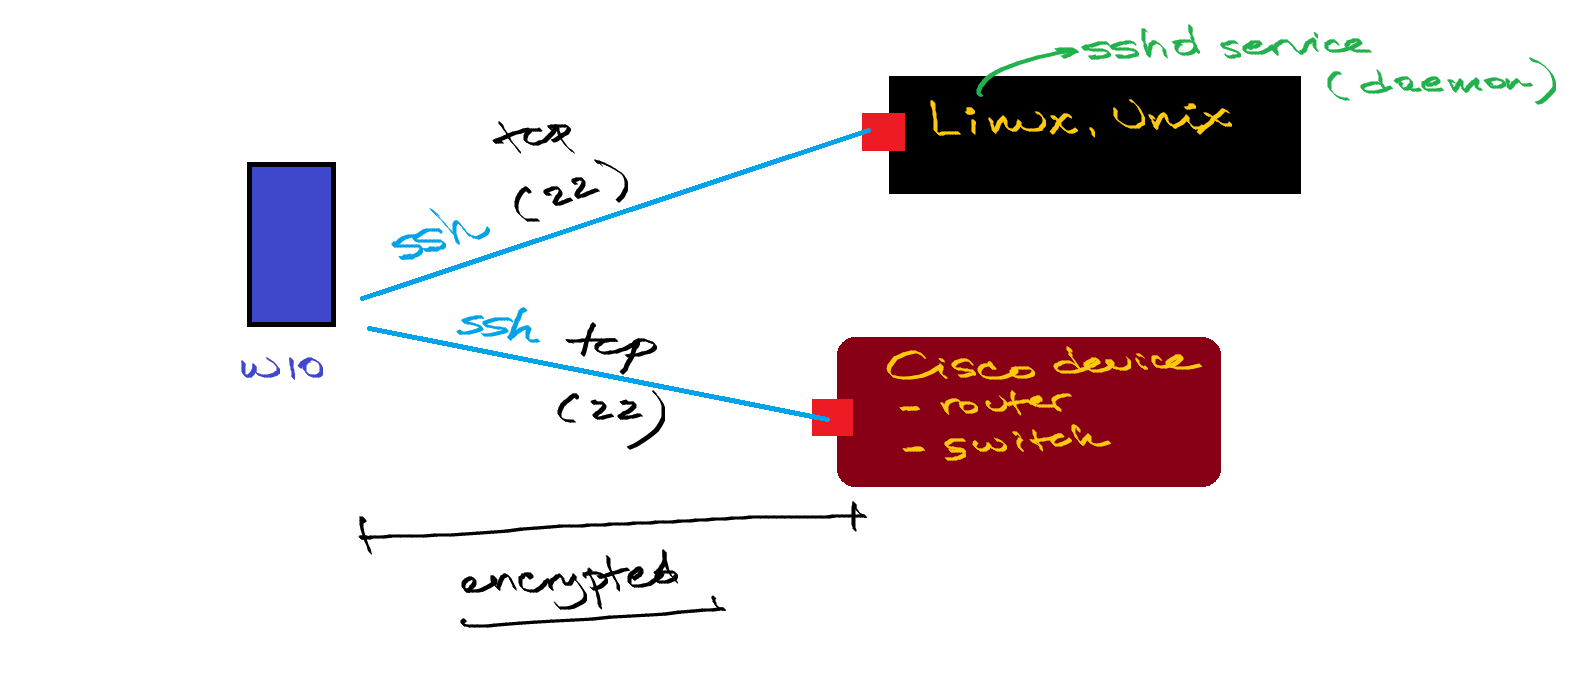 sshd service
(daemon)
Linux, Unix
tcp
(22)
ssh
W10
ssh
tcp
(22)
Cisco device
- router
- switch
encrypted